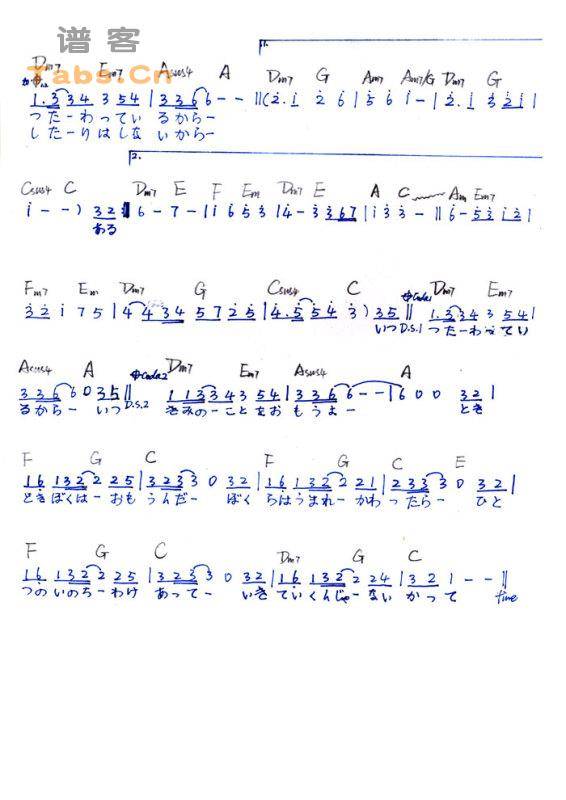 谱客
Tabs.Cn
1.
Dm7 Em7 Asus4 A Dm7 G Am7 Am7/G Dm7 G
1.3 34 3 54 | 3 3 6 6 - - || (2. 1 2 6 | 5 6 1 - | 2. 1 3 2 1 |
つたーわってい るからー
したーりはしな いからー
2.
Csus4 C Dm7 E F Em Dm7 E A C Am Em7
1 - - ) 32 :|| 6 - 7 - | 1 6 5 3 | 4 - 3 3 6 7 | 1 3 3 - || 6 - 5 3 1 2 |
ある
Fm7 Em Dm7 G Csus4 C Coda1 Dm7 Em7
3 2 1 7 5 | 4 4 3 4 5 7 2 5 | 4. 5 5 4 3 ) 35 || 1.3 34 3 54 |
いつ D.S.1 つたーわってい
Asus4 A Coda2 Dm7 Em7 Asus4 A
3 3 6 6 0 35 || 1 1 3 3 4 3 5 4 | 3 3 6 6 - - | 6 0 0 32 |
るからー いつ D.S.2 きみのーことをお もうよー とき
F G C F G C E
16 132 2 25 | 323 3 0 32 | 16 132 2 21 | 233 3 0 32 |
ときぼくはーおも うんだー ぼく ちはうまれーかわ ったらー ひと
F G C Dm7 G C
16 132 2 25 | 323 3 0 32 | 16 132 2 24 | 3 2 1 - - ||
つのいのちーわけ あってー いき ていくんじゃーない かって fine